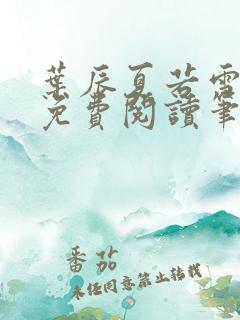 葉辰夏若雪
免費閱讀筆
番茄
未經同意禁止轉載